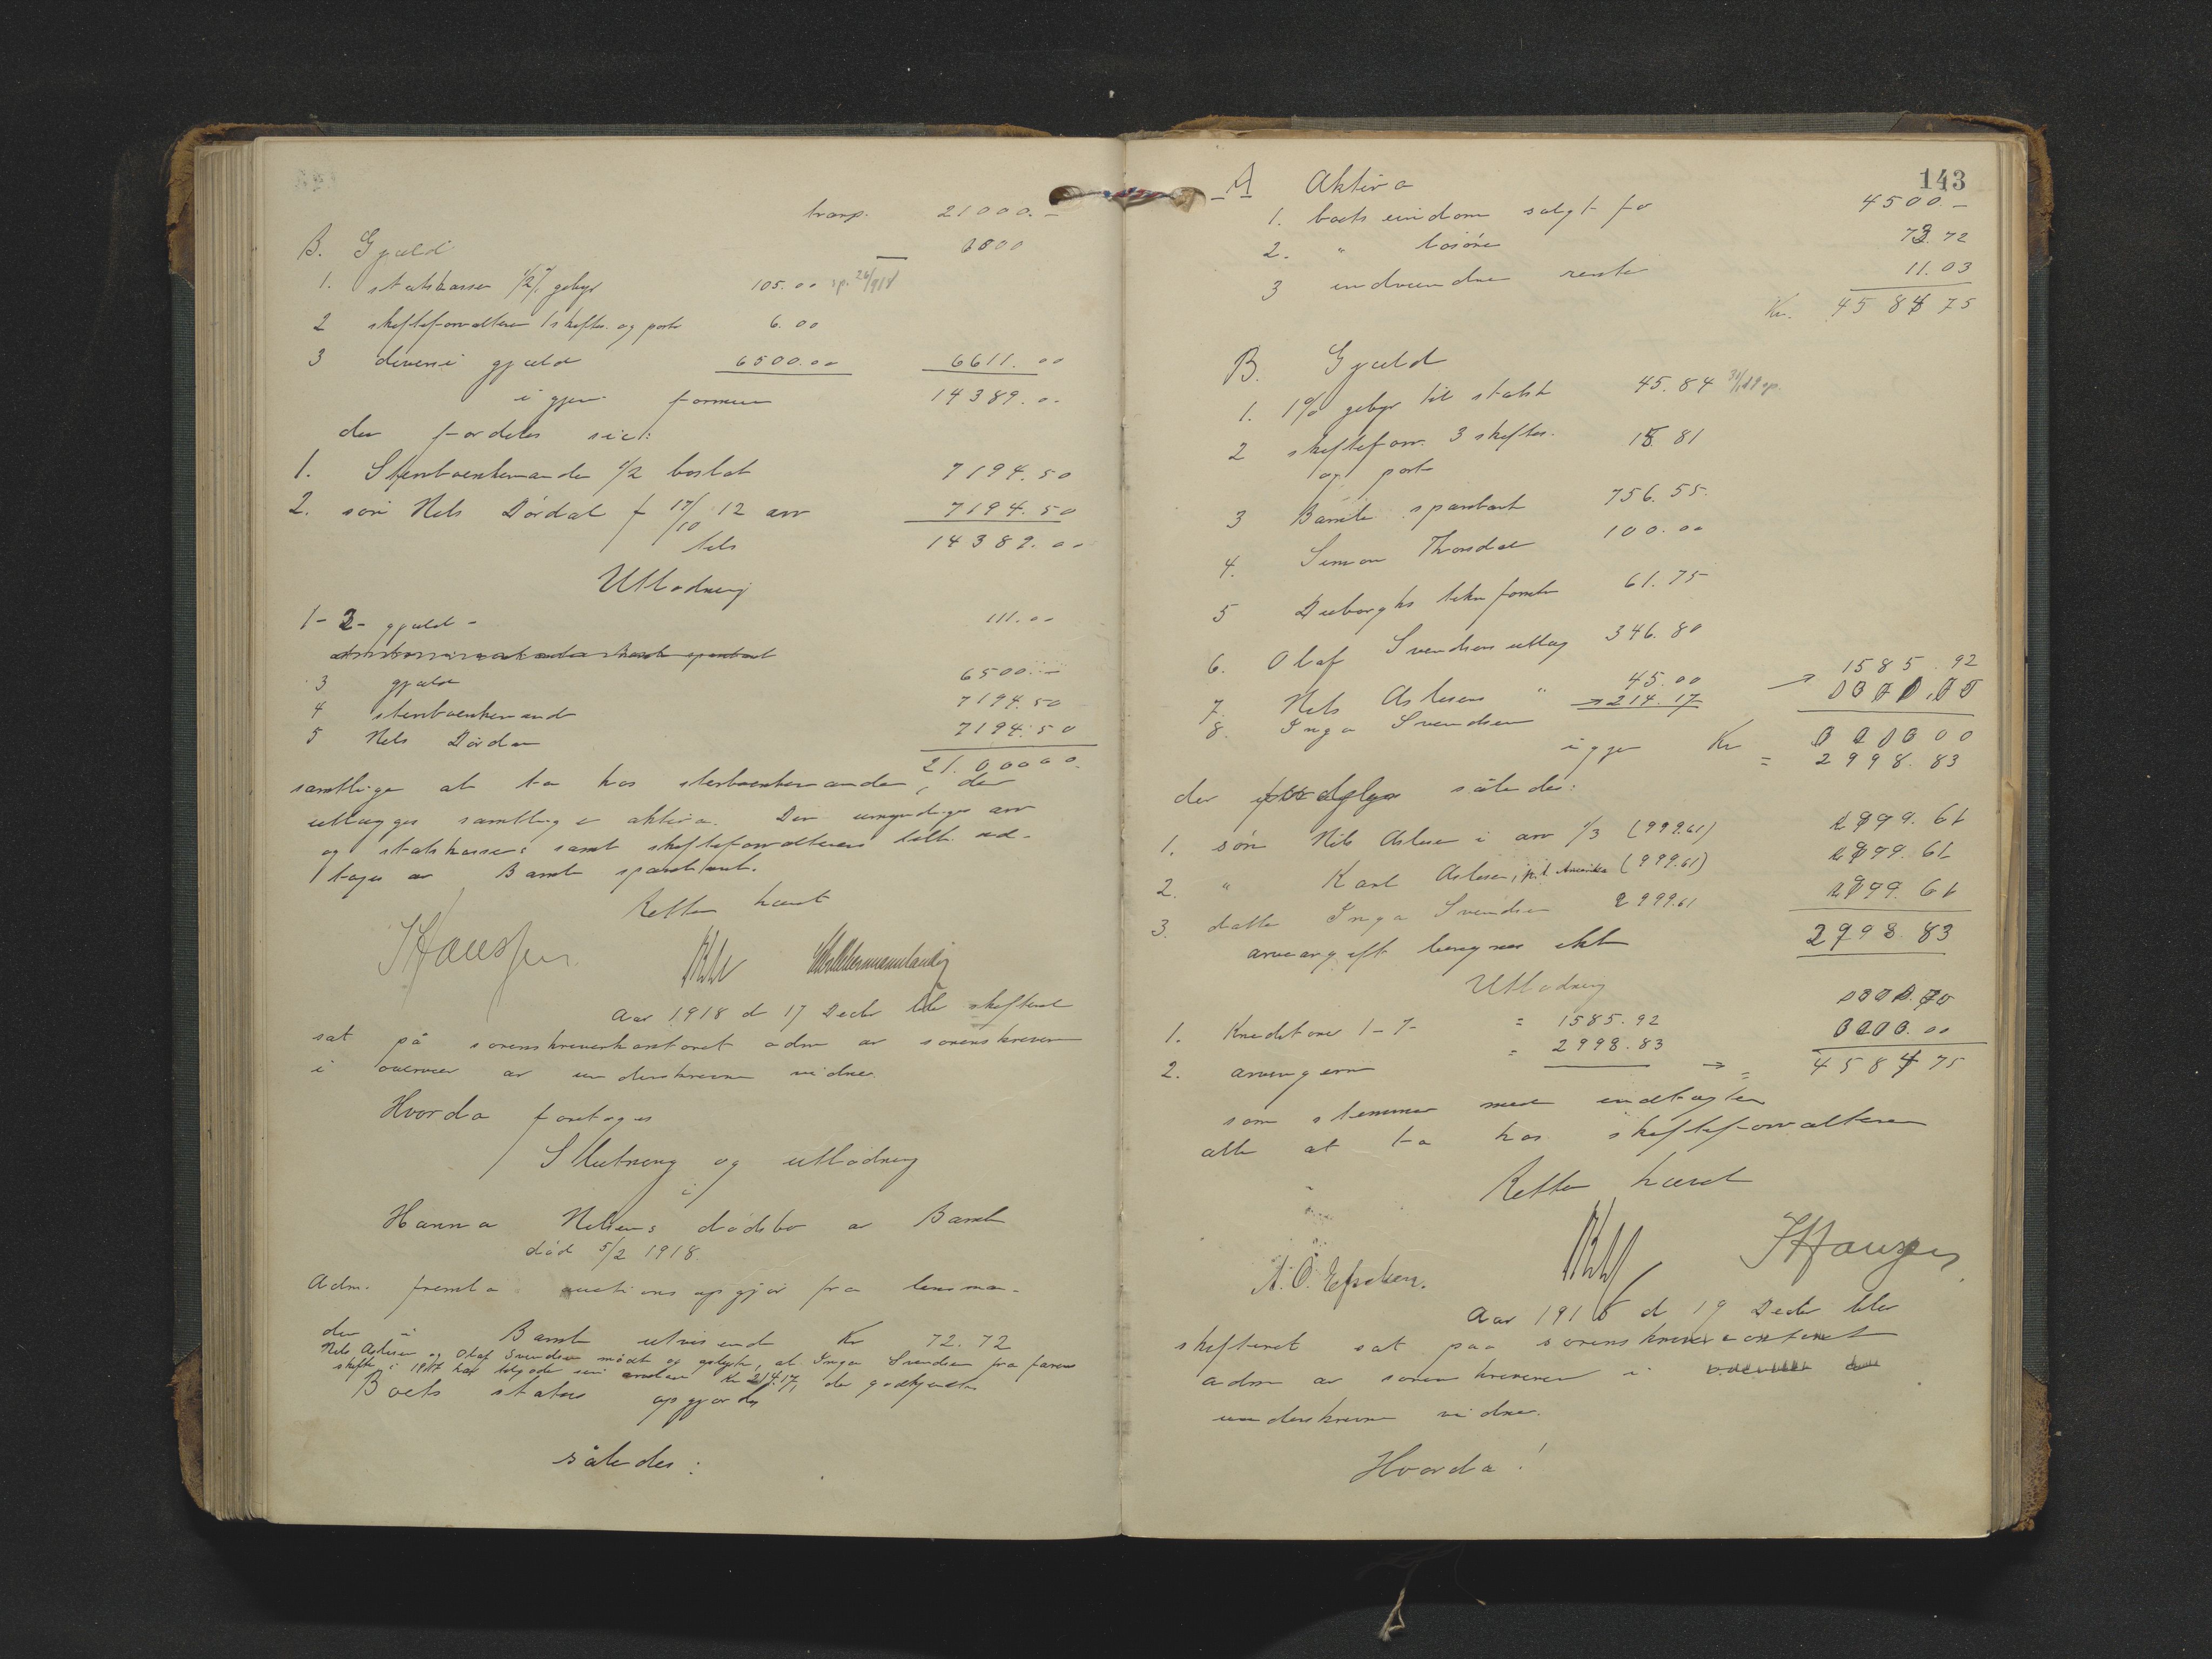 transp. 21000.-
B. Gjæld
1. statskassen 1/2% gebyr 105.00
2 skifteforvalteren 1 skiftes. og porto 6.00
3 diverse gjæld 6500.00 6611.00
igjen formue 14389.00
der fordeles sic:
1. Stervboenkemanden 1/2 boslod 7194.50
2. søn Nels Dördal f 17/10 12 arv 7194.50
tils 14389.00
Utlodning
1-2- gjæld - 111.00
3 gjæld 6500.-
4 stervboenkemand 7194.50
5 Nels Dördal 7194.50
21.00000
samtlige at ta hos stervboenkemanden, der
utlægges samtlige aktiva. Den umyndiges arv
og statskassens samt skifteforvalterens tilk ud-
tages av Bamble sparebank.
Retten hævet
Aar 1918 d 17 Decbr blev skifteret
sat på sorenskriverkontoret adm av sorenskriveren
i overvær av underskrevne vidner.
Hvorda foretoges
Slutning og utlodning
i
Hanna Nelsens dödsbo av Bamble
död 5/2 1918
Adm. fremla auctionsopgjör fra lensman-
den i Bamble utvisende Kr 72.72
Nels Aslesen og Olaf Svendsen mödt og oplyste, at Inga Svendsen fra farens
skifte i 1917 har tilgode sin arvelod Kr 214.17, der godkjendtes
Boets status opgjordes
således:
143
A Aktiva
1. boets eiendom solgt for 4500.-
2. " lösöre 72.72
3 indvundne renter 11.03
Kr. 4584 75
B. Gjæld
1. 1% gebyr til statsk 45.84
2 skifteforv. 3 skiftes. 15 81
og porto
3 Bamble sparebank 756.55
4. Simon Thorsdal 100.00
5 61.75
6. Olaf Svendsens utlæg 346.80
7. Nels Aslesens " 45.00
8. Inga Svendsen → 214.17 → 1585.92
igjen Kr = 2998.83
der fordeles således:
1. søn Nils Aslesen i arv 1/3 (999.61) 999.61
2. " Karl Aslesen, p.t. Amerika (999.61) 999.61
3. datter Inga Svendsen 999.61 999.61
arveavgift beregnes ikke 2998.83
Utlodning
1. Kreditorer 1-7- = 1585.92
2. arvingerne = 2998.83 → = 4584 75
som stemmer med indtægten
alle at ta hos skifteforvalteren
Retten hævet
Aar 1918 d 19 Decbr blev
skifteret sat paa sorenskriverkontoret
adm av sorenskriveren i
underskrevne vidner.
Hvorda!